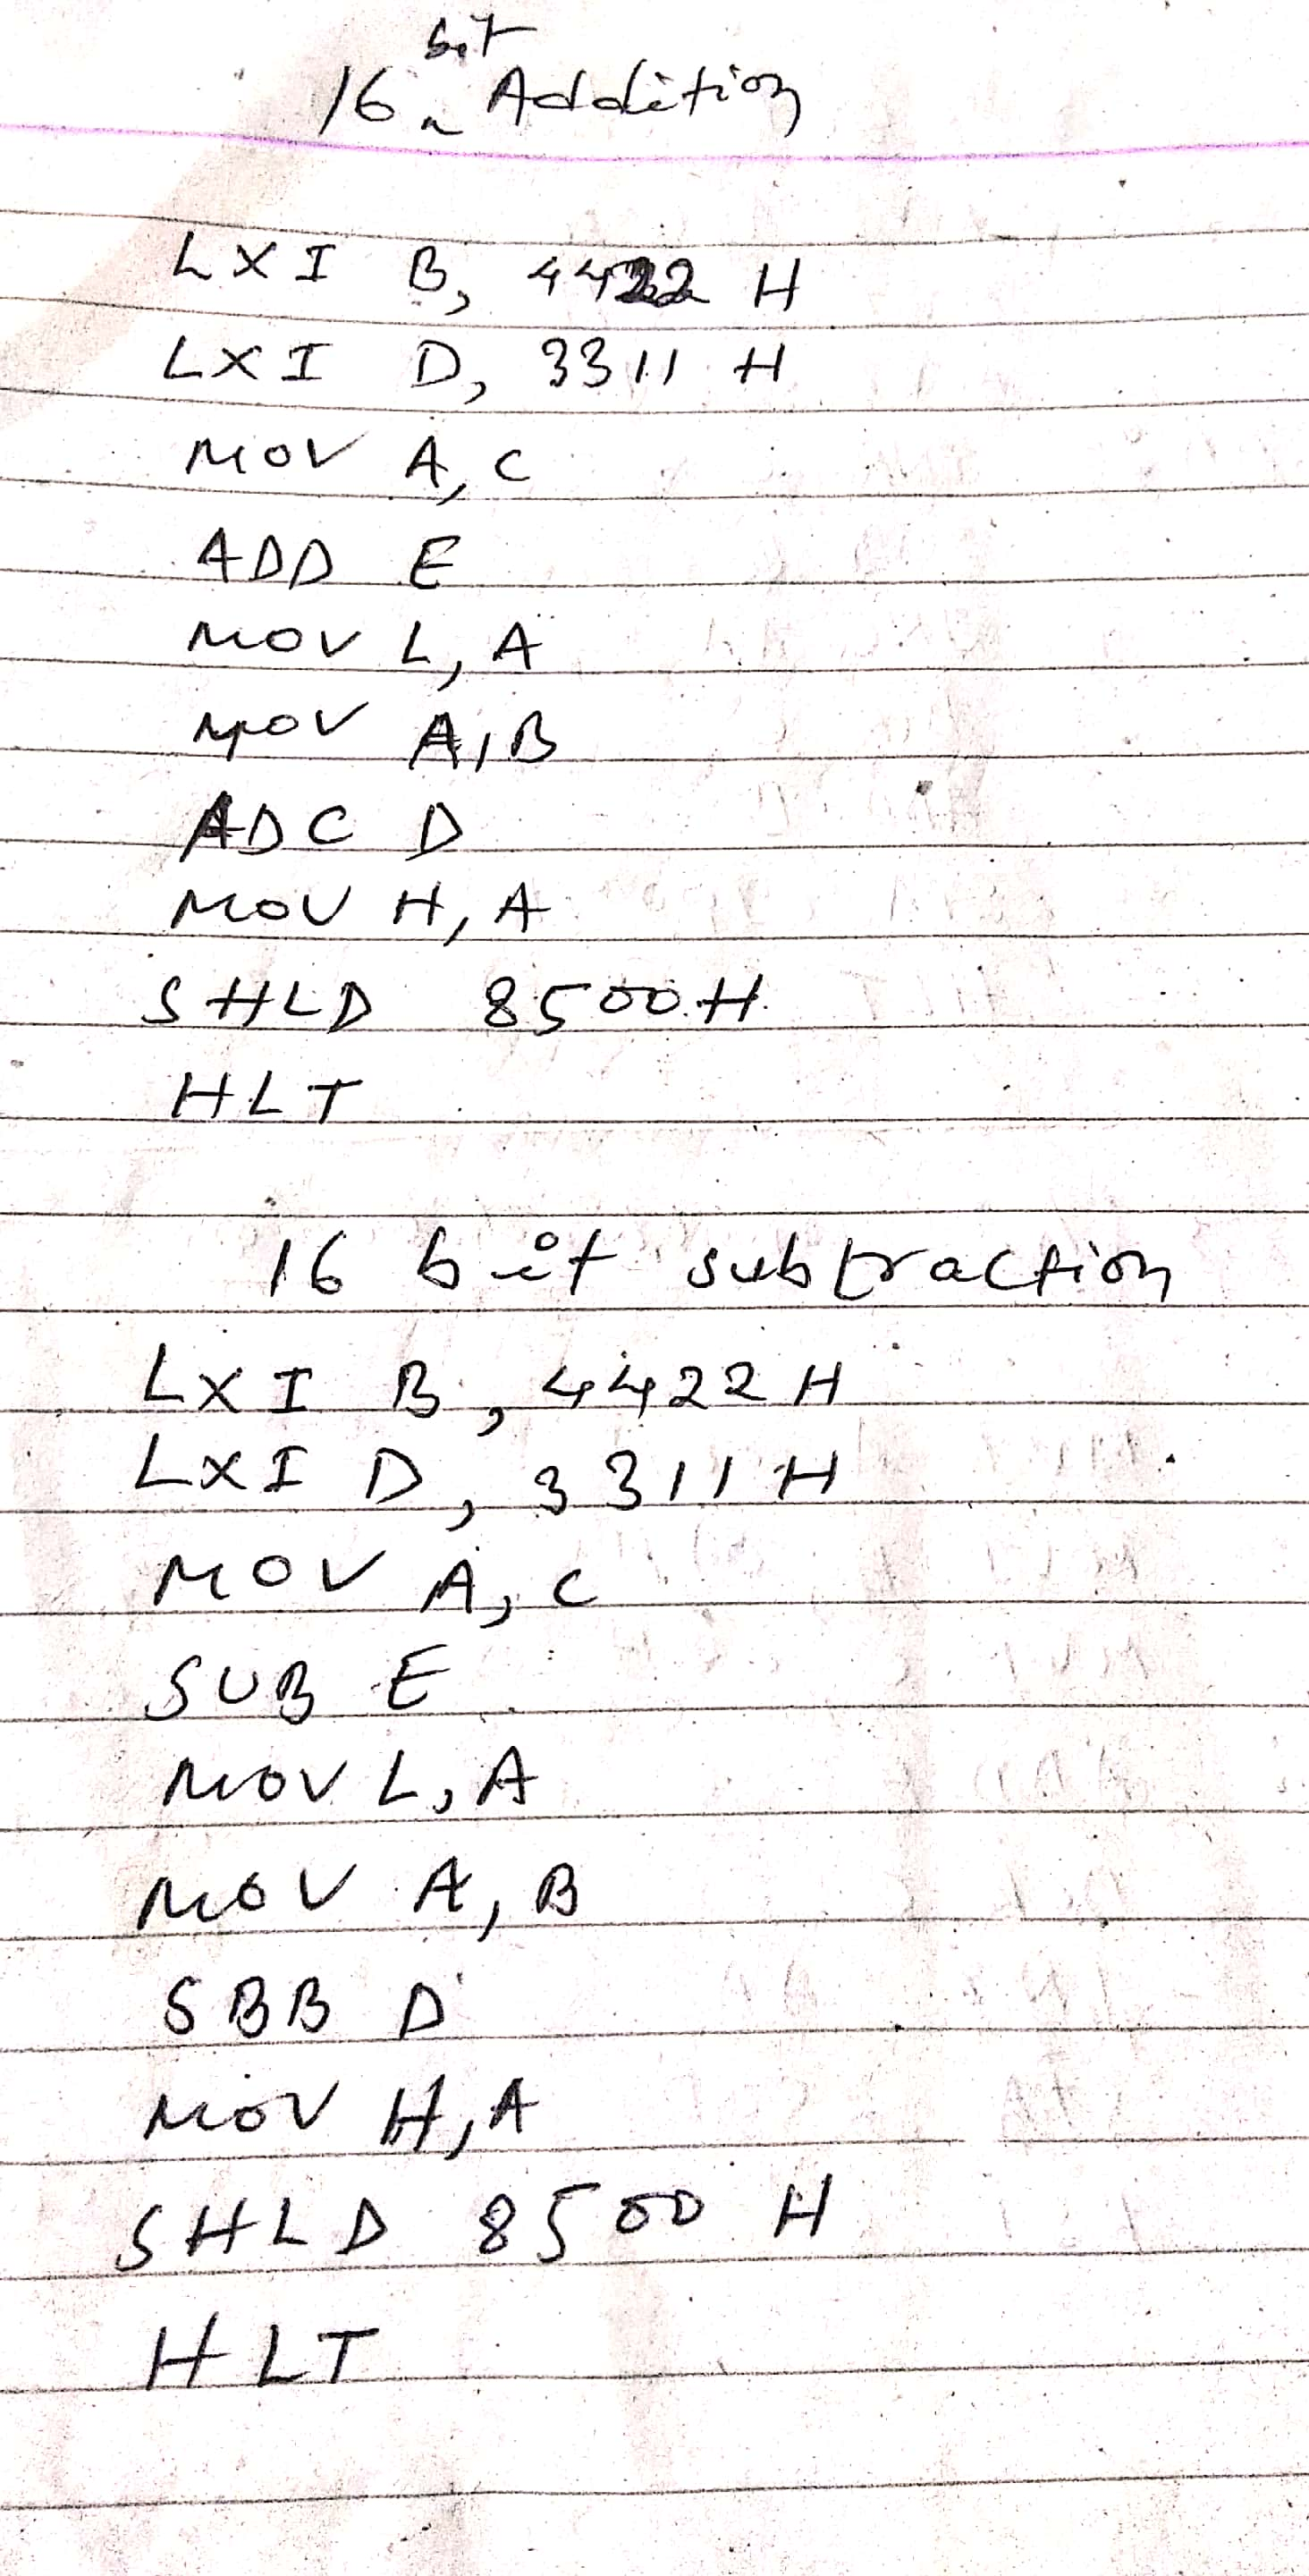 16 bit Addition
LXI B, 4422 H
LXI D, 3311 H
MOV A, C
ADD E
MOV L, A
MOV A, B
ADC D
MOV H, A
SHLD 8500 H
HLT
16 bit subtraction
LXI B, 4422 H
LXI D, 3311 H
MOV A, C
SUB E
MOV L, A
MOV A, B
SBB D
MOV H, A
SHLD 8500 H
HLT